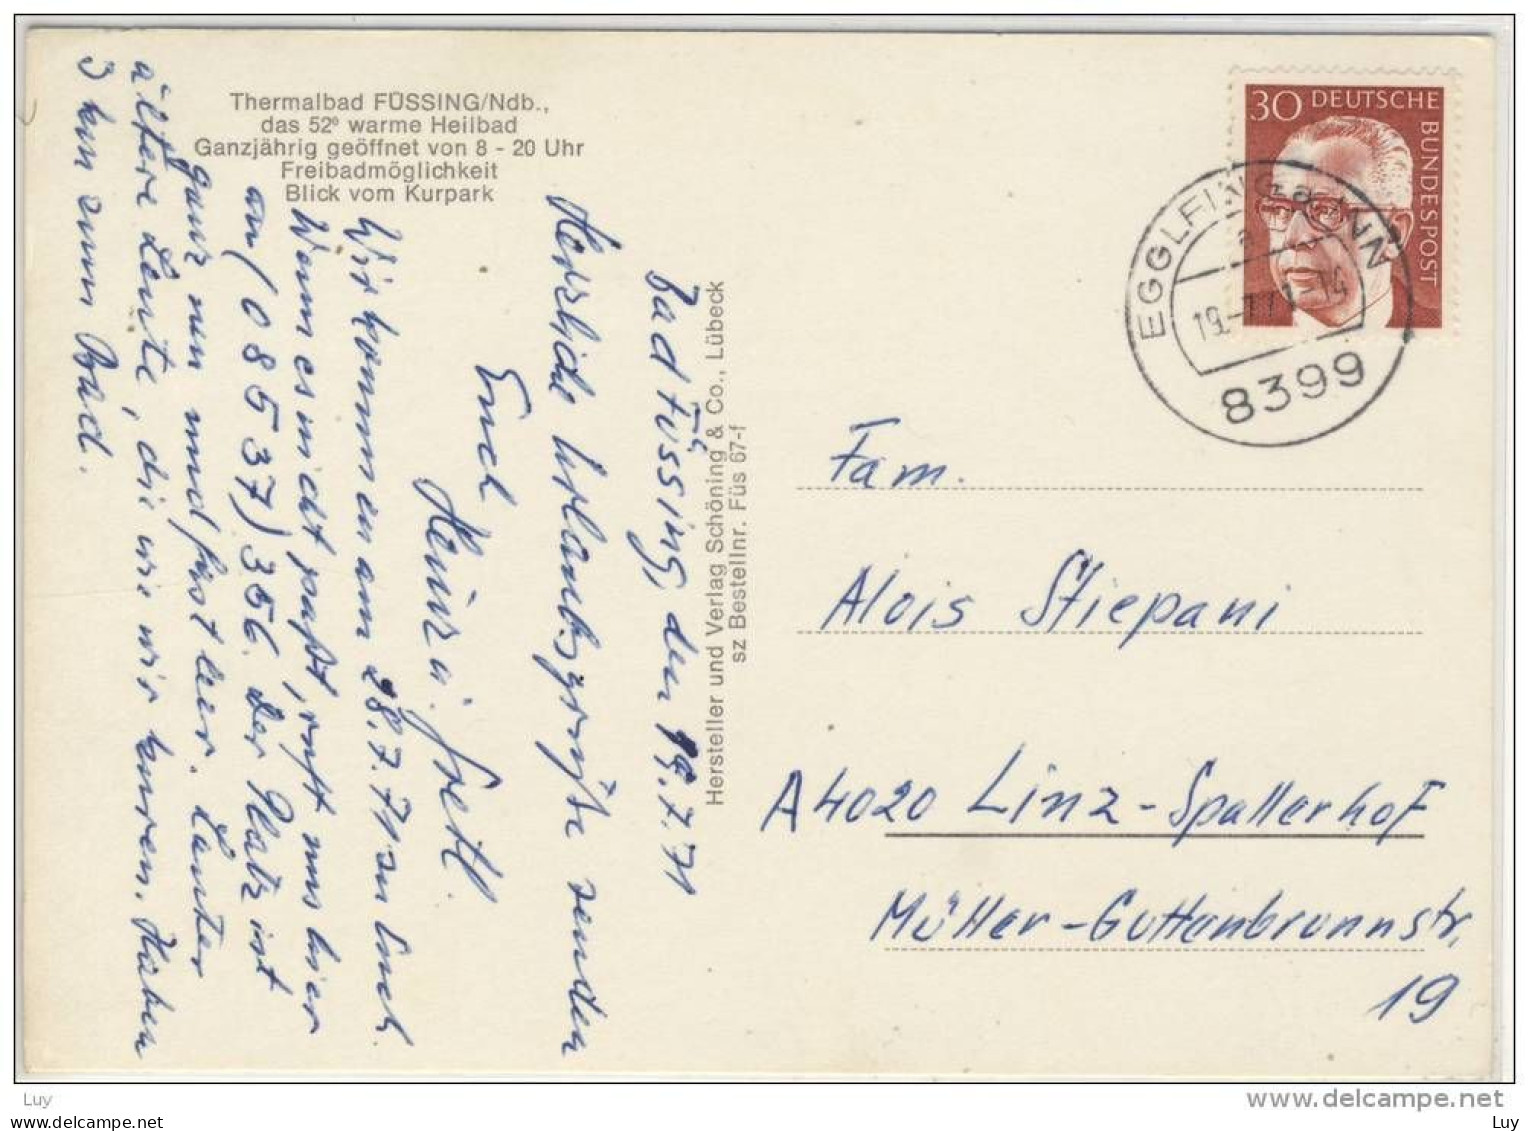 Thermalbad FÜSSING/Ndb.,
das 52º warme Heilbad
Ganzjährig geöffnet von 8 - 20 Uhr
Freibadmöglichkeit
Blick vom Kurpark
Bad Füssing, den 19.7.71
Herzliche Urlaubsgrüße senden
Euch
Heinz u. Gretl.
Wir kommen am 28.7.71 zu Euch.
Wenn es nicht paßt, ruft uns hier
an (08537) 356. Der Platz ist
ganz neu und fast leer. Lauter
ältere Leute, die wie wir kuren. Haben
3 km zum Bad.
Hersteller und Verlag Schöning & Co., Lübeck
sz Bestellnr. Füs 67-f
30 DEUTSCHE
BUNDESPOST
EGGLFING a INN
a
19.-7.71-14
8399
Fam.
Alois Stiepani
A 4020 Linz-Spallerhof
Müller-Guttenbrunnstr.
19
Luy
delcampe.net
Luy
Luy